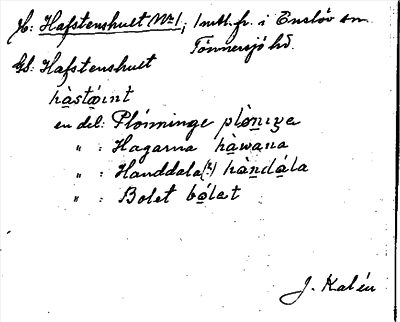 Jb: Hafstenshult No 1, 1 mtl. fr. i Enslöv sn
Tönnersjö hd.
Gb: Hafstenshult
hàstǫint
en del: Plönninge plöniŋe
" : Hagarna hàwana
" : Handdala(?) hàndála
" : Bolet bólat
J. Kalén